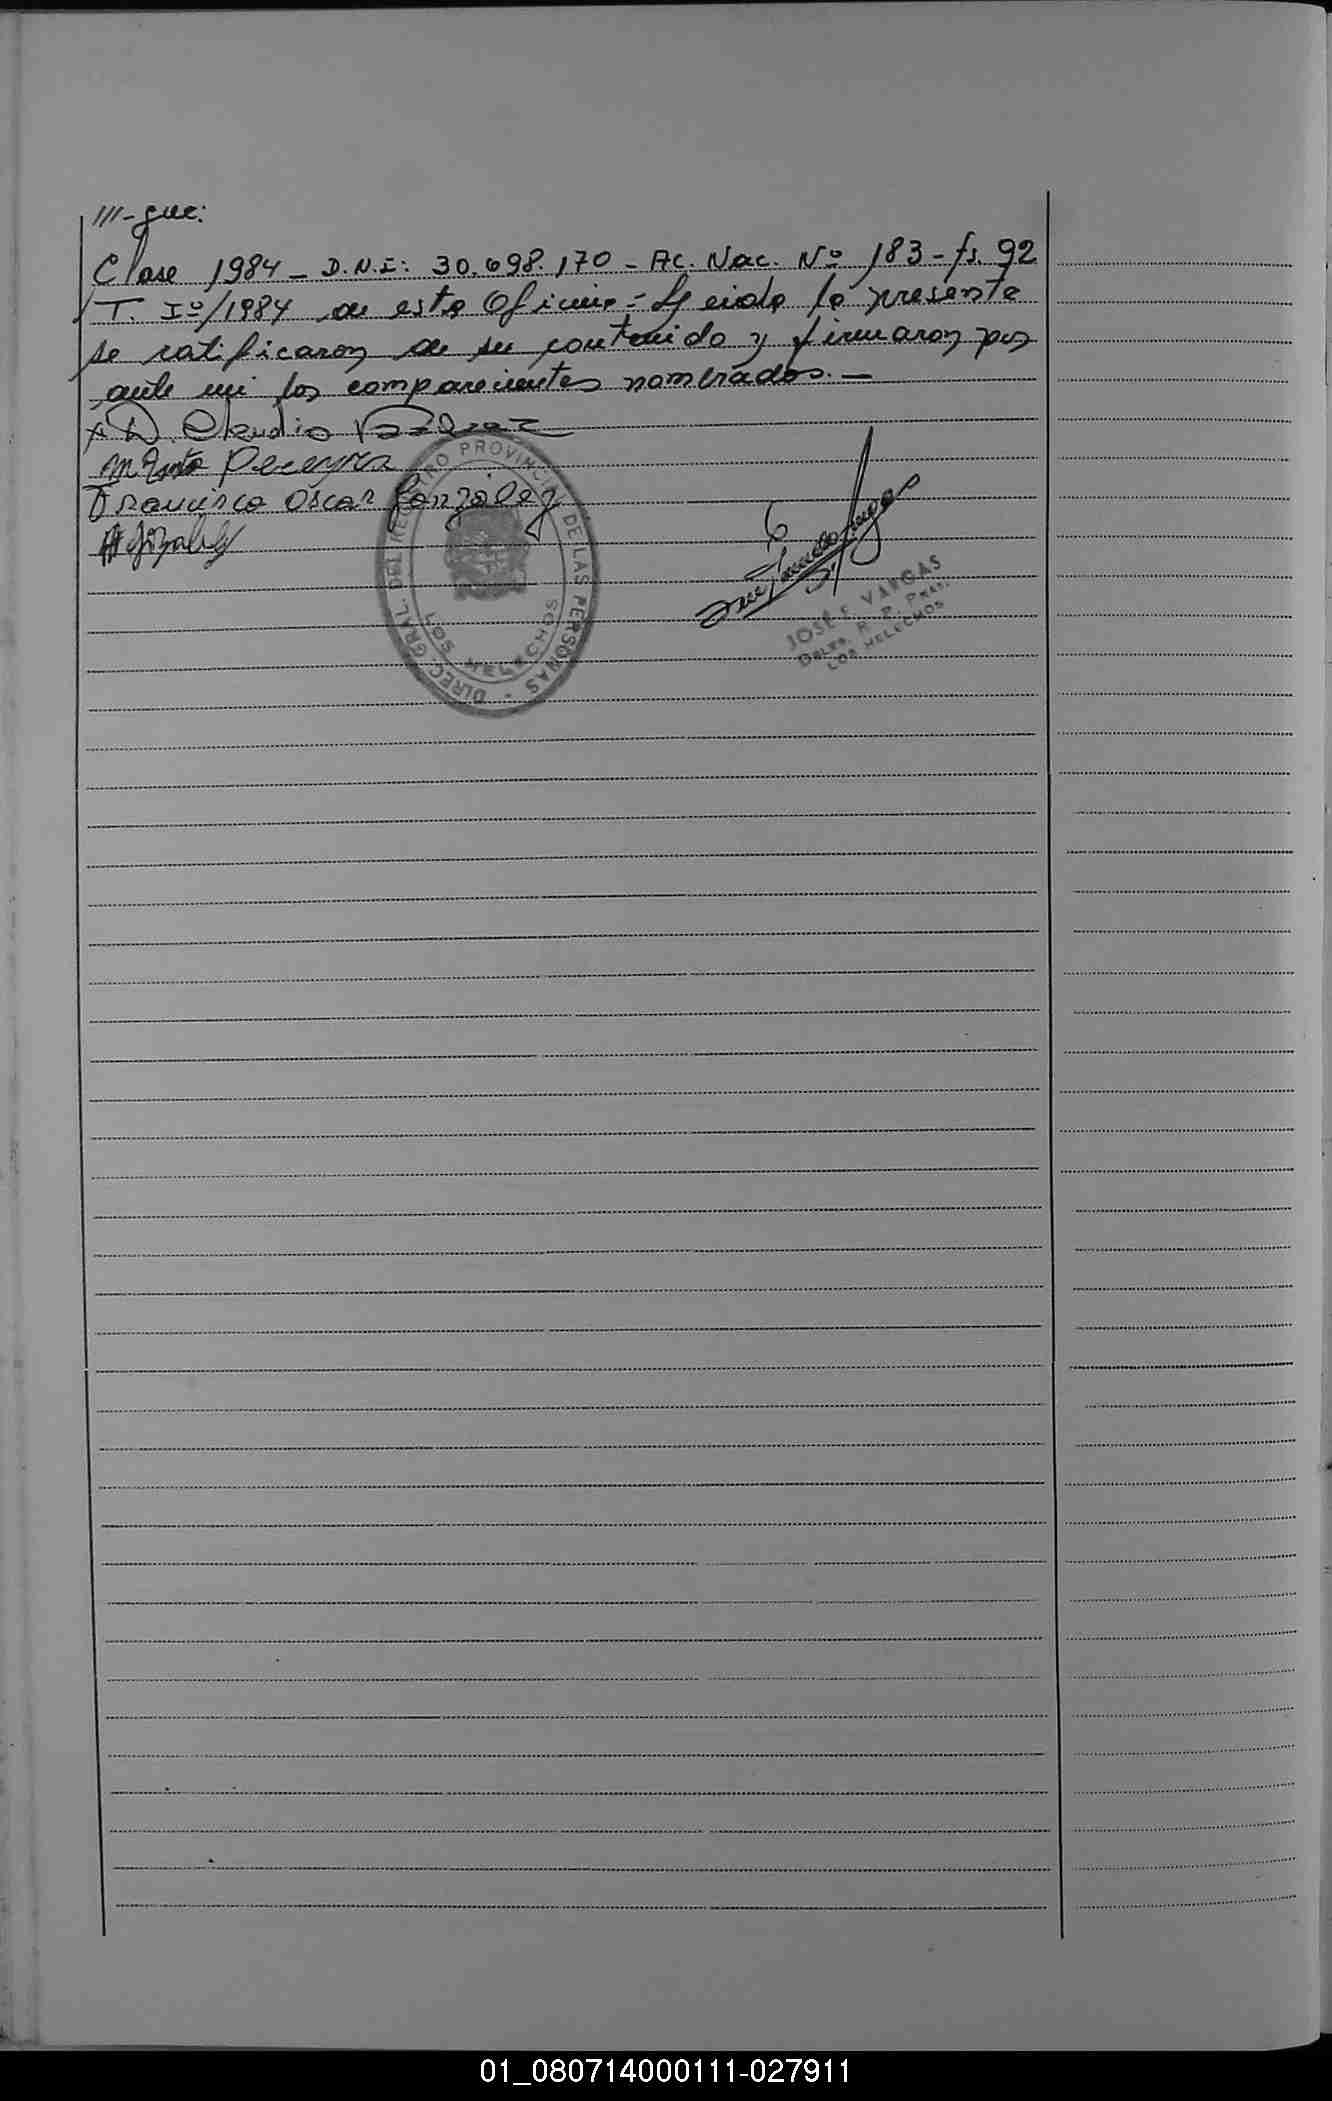 ///-gue:
Clase 1984 - D.N.I: 30.698.170 - Ac. Nac. Nº 183 - fs. 92
T. Iº/1984 de esta Oficina = Leida la presente
se ratificaron de su contenido y firmaron por
ante mi los comparecientes nombrados. —
x D. Claudio
Pereyra
Francisco Oscar González
DIREC. GRAL. DEL REGISTRO PROVINCIAL DE LAS PERSONAS
LOS HELECHOS
JOSÉ F. VARGAS
LOS HELECHOS
01_080714000111-027911